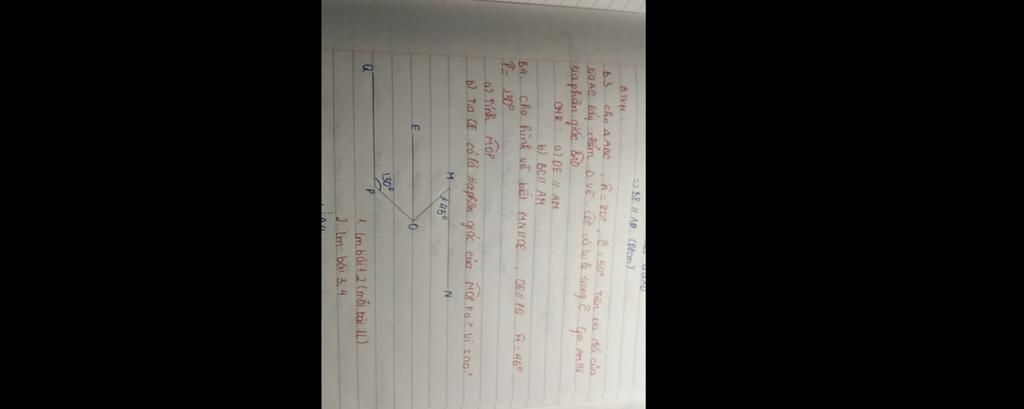 => DE // AD (Đfcm)
BTVN:
B.3 cho ΔABC, Â = 80°, Ĉ = 50° trên tia đối của
tia AC lấy điểm D vẽ so le trong Ĉ Gọi AM là
tia phân giác BAD
CMR: a) DE // AM
b) BC // AM
B4. Cho hình vẽ biết MN // OE, OE // PQ, M̂ = 45°
P̂ = 130°
a) Tính MOP
b) Tia OE có là tia phân giác của MOP ko? vì sao?
M
45°
N
E
O
130°
Q
P
1. Lm bài 1,2 (mỗi bài 1L)
2. Lm bài 3,4